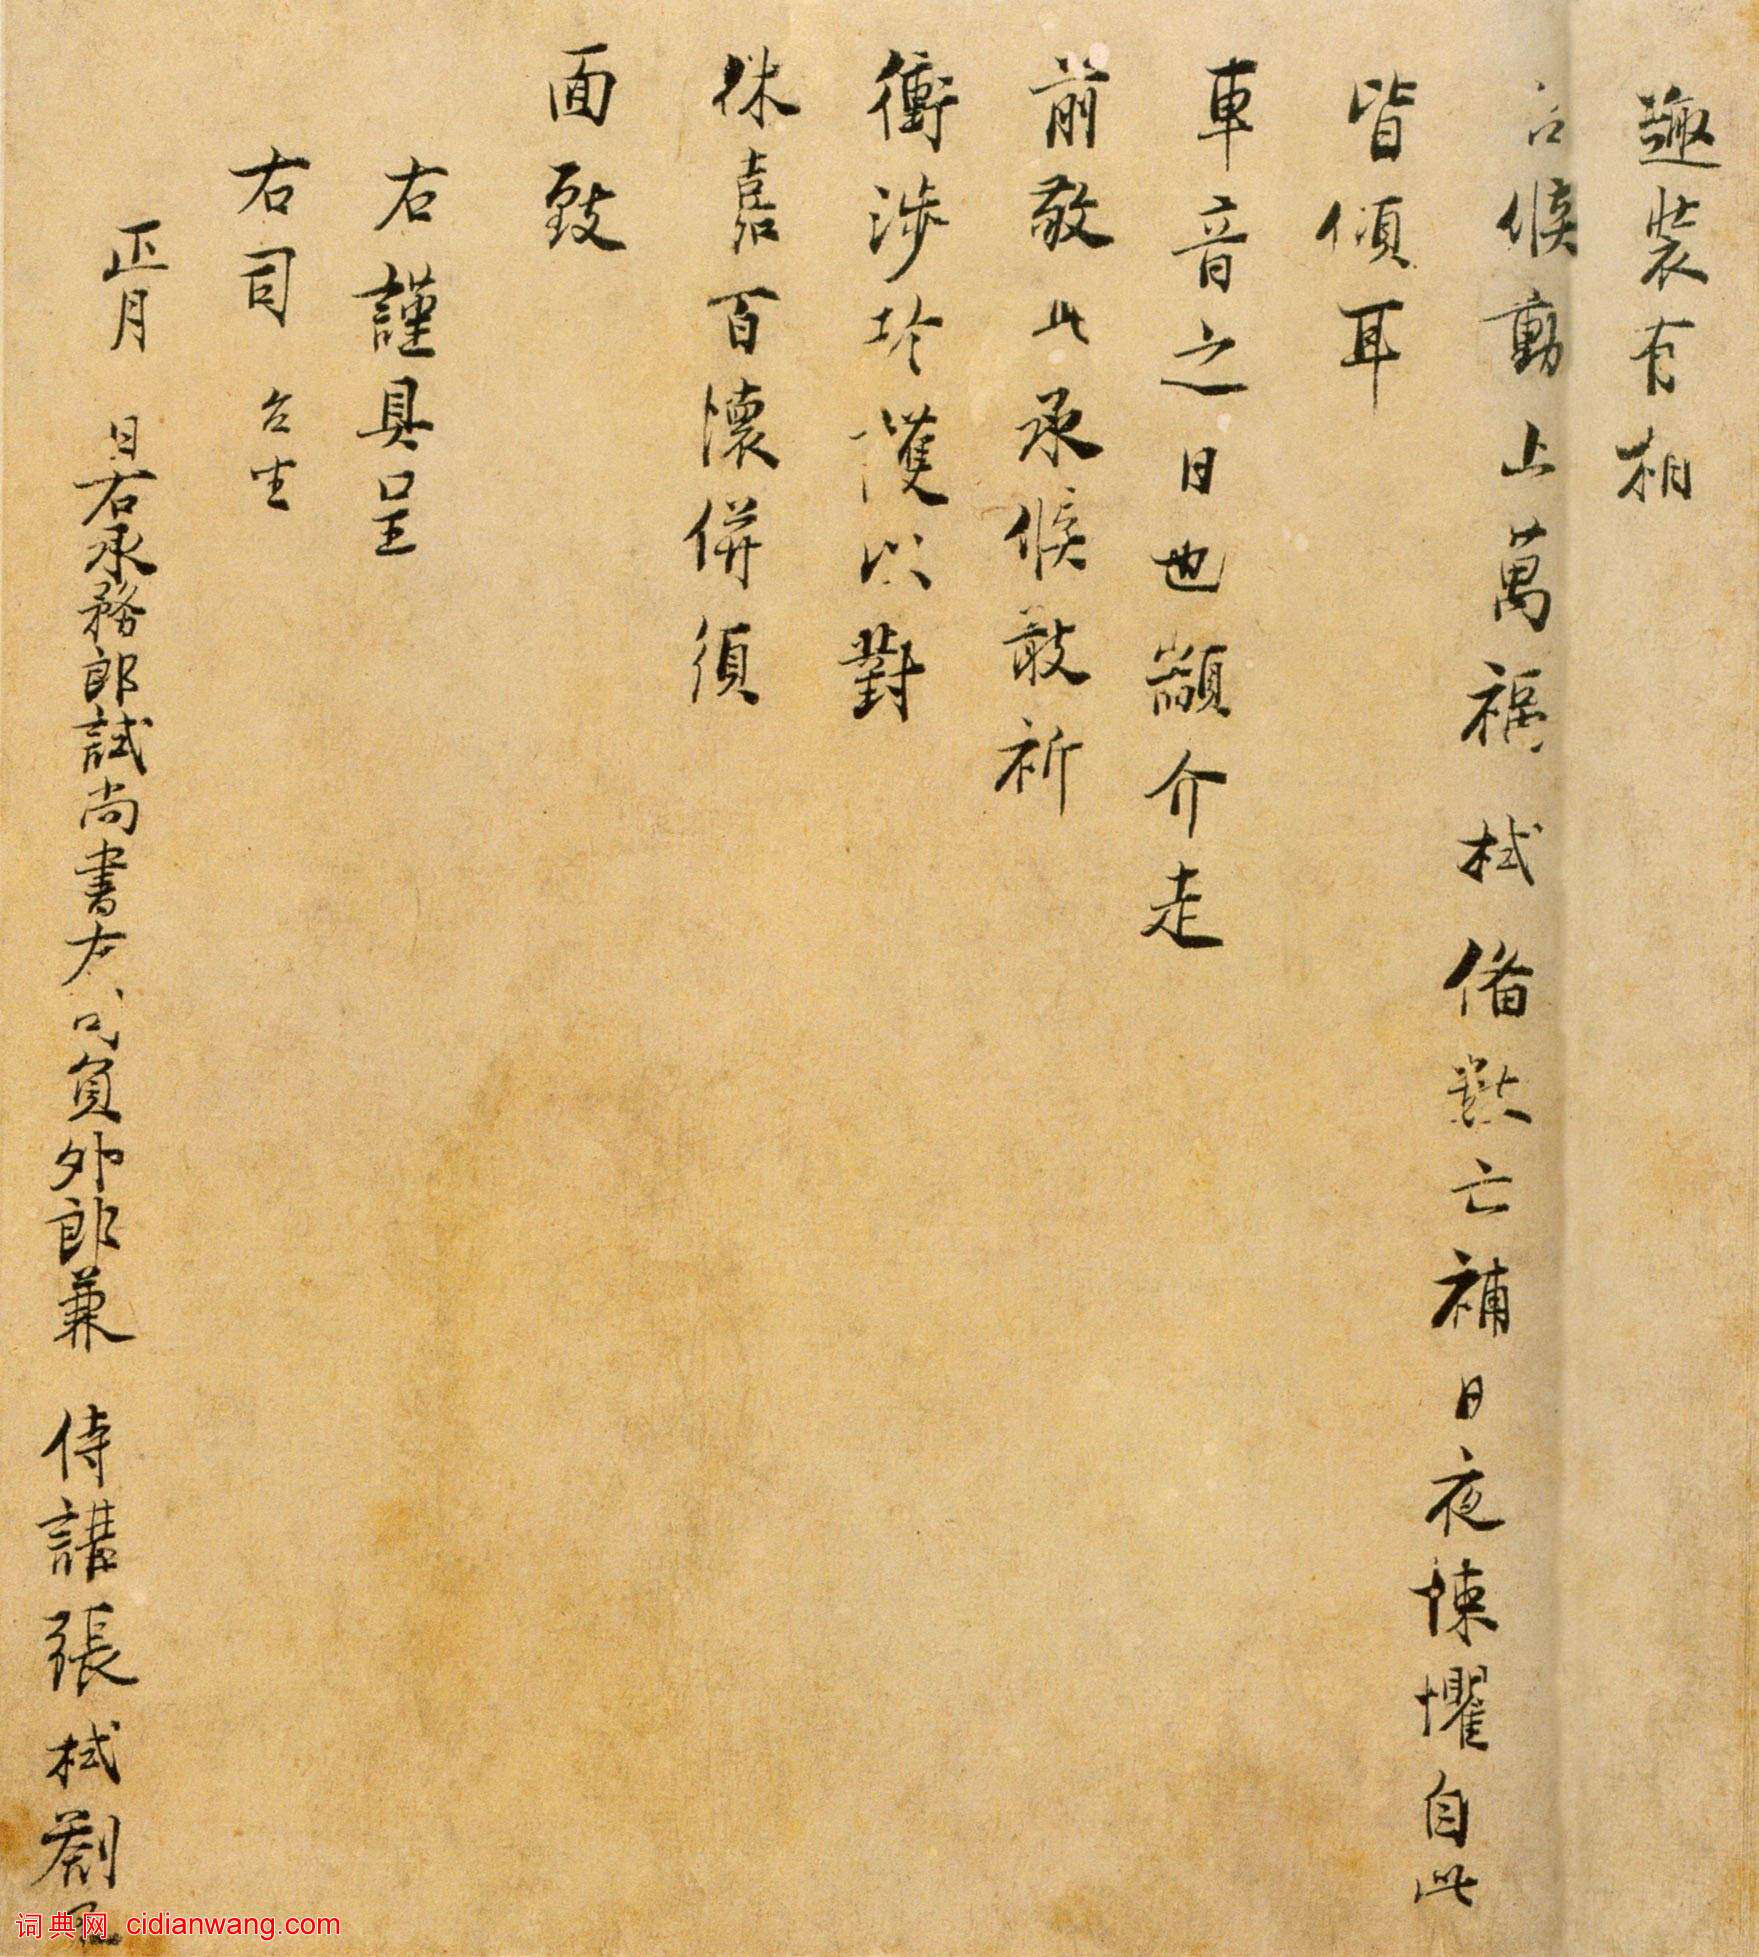 趣装有相
台候動止萬福栻備數亡補日夜悚懼自此
皆傾耳
車音之日也顓介走
前敬此承候敢祈
衝涉珍護以對
休嘉百懷併須
面致
右謹具呈
右司 台坐
正月 日右承務郎試尚書左司員外郎兼 侍講張栻劄子
词典网 cidianwang.com